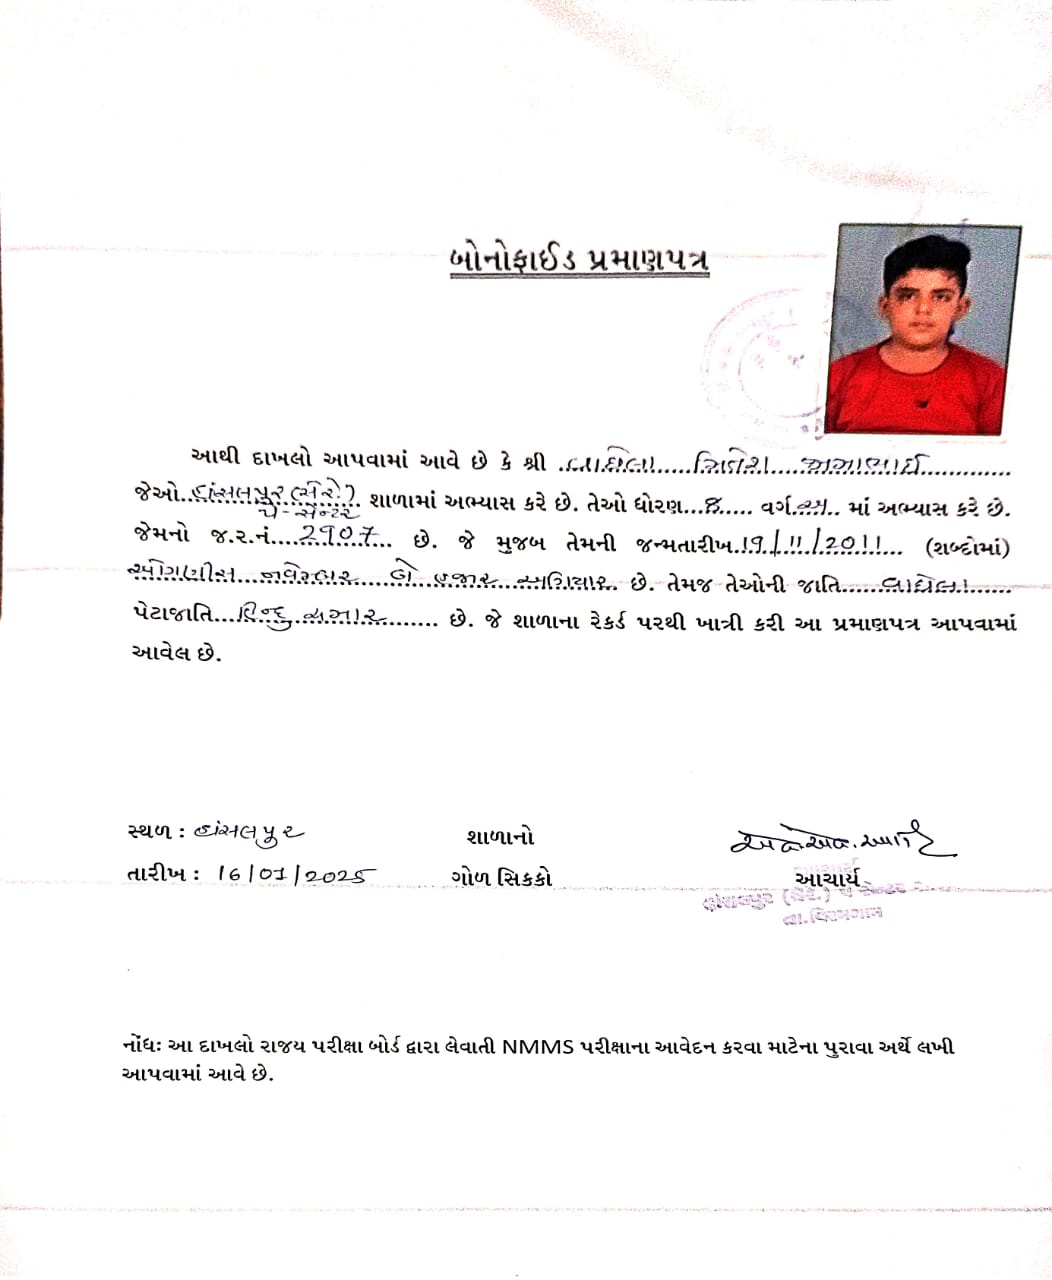 બોનોફાઈડ પ્રમાણપત્ર
આથી દાખલો આપવામાં આવે છે કે શ્રી વાઘેલા
જેઓ હાંસલપુર(સેરે) શાળામાં અભ્યાસ કરે છે. તેઓ ધોરણ 8 વર્ગ અ માં અભ્યાસ કરે છે.
પે-સેન્ટર
જેમનો જ.ર.નં. 2907 છે. જે મુજબ તેમની જન્મતારીખ 19/11/2011 (શબ્દોમાં)
ઓગણીસ નવેમ્બર બે હજાર અગિયાર છે. તેમજ તેઓની જાતિ વાઘેલા
પેટાજાતિ હિન્દુ ચમાર છે. જે શાળાના રેકર્ડ પરથી ખાત્રી કરી આ પ્રમાણપત્ર આપવામાં
આવેલ છે.
સ્થળ : હાંસલપુર શાળાનો
તારીખ : 16/01/2025 ગોળ સિકકો આચાર્ય
હાંસલપુર (સેરે.) પે સેન્ટર
તા.વિરમગામ
નોંધઃ આ દાખલો રાજય પરીક્ષા બોર્ડ દ્વારા લેવાતી NMMS પરીક્ષાના આવેદન કરવા માટેના પુરાવા અર્થે લખી
આપવામાં આવે છે.